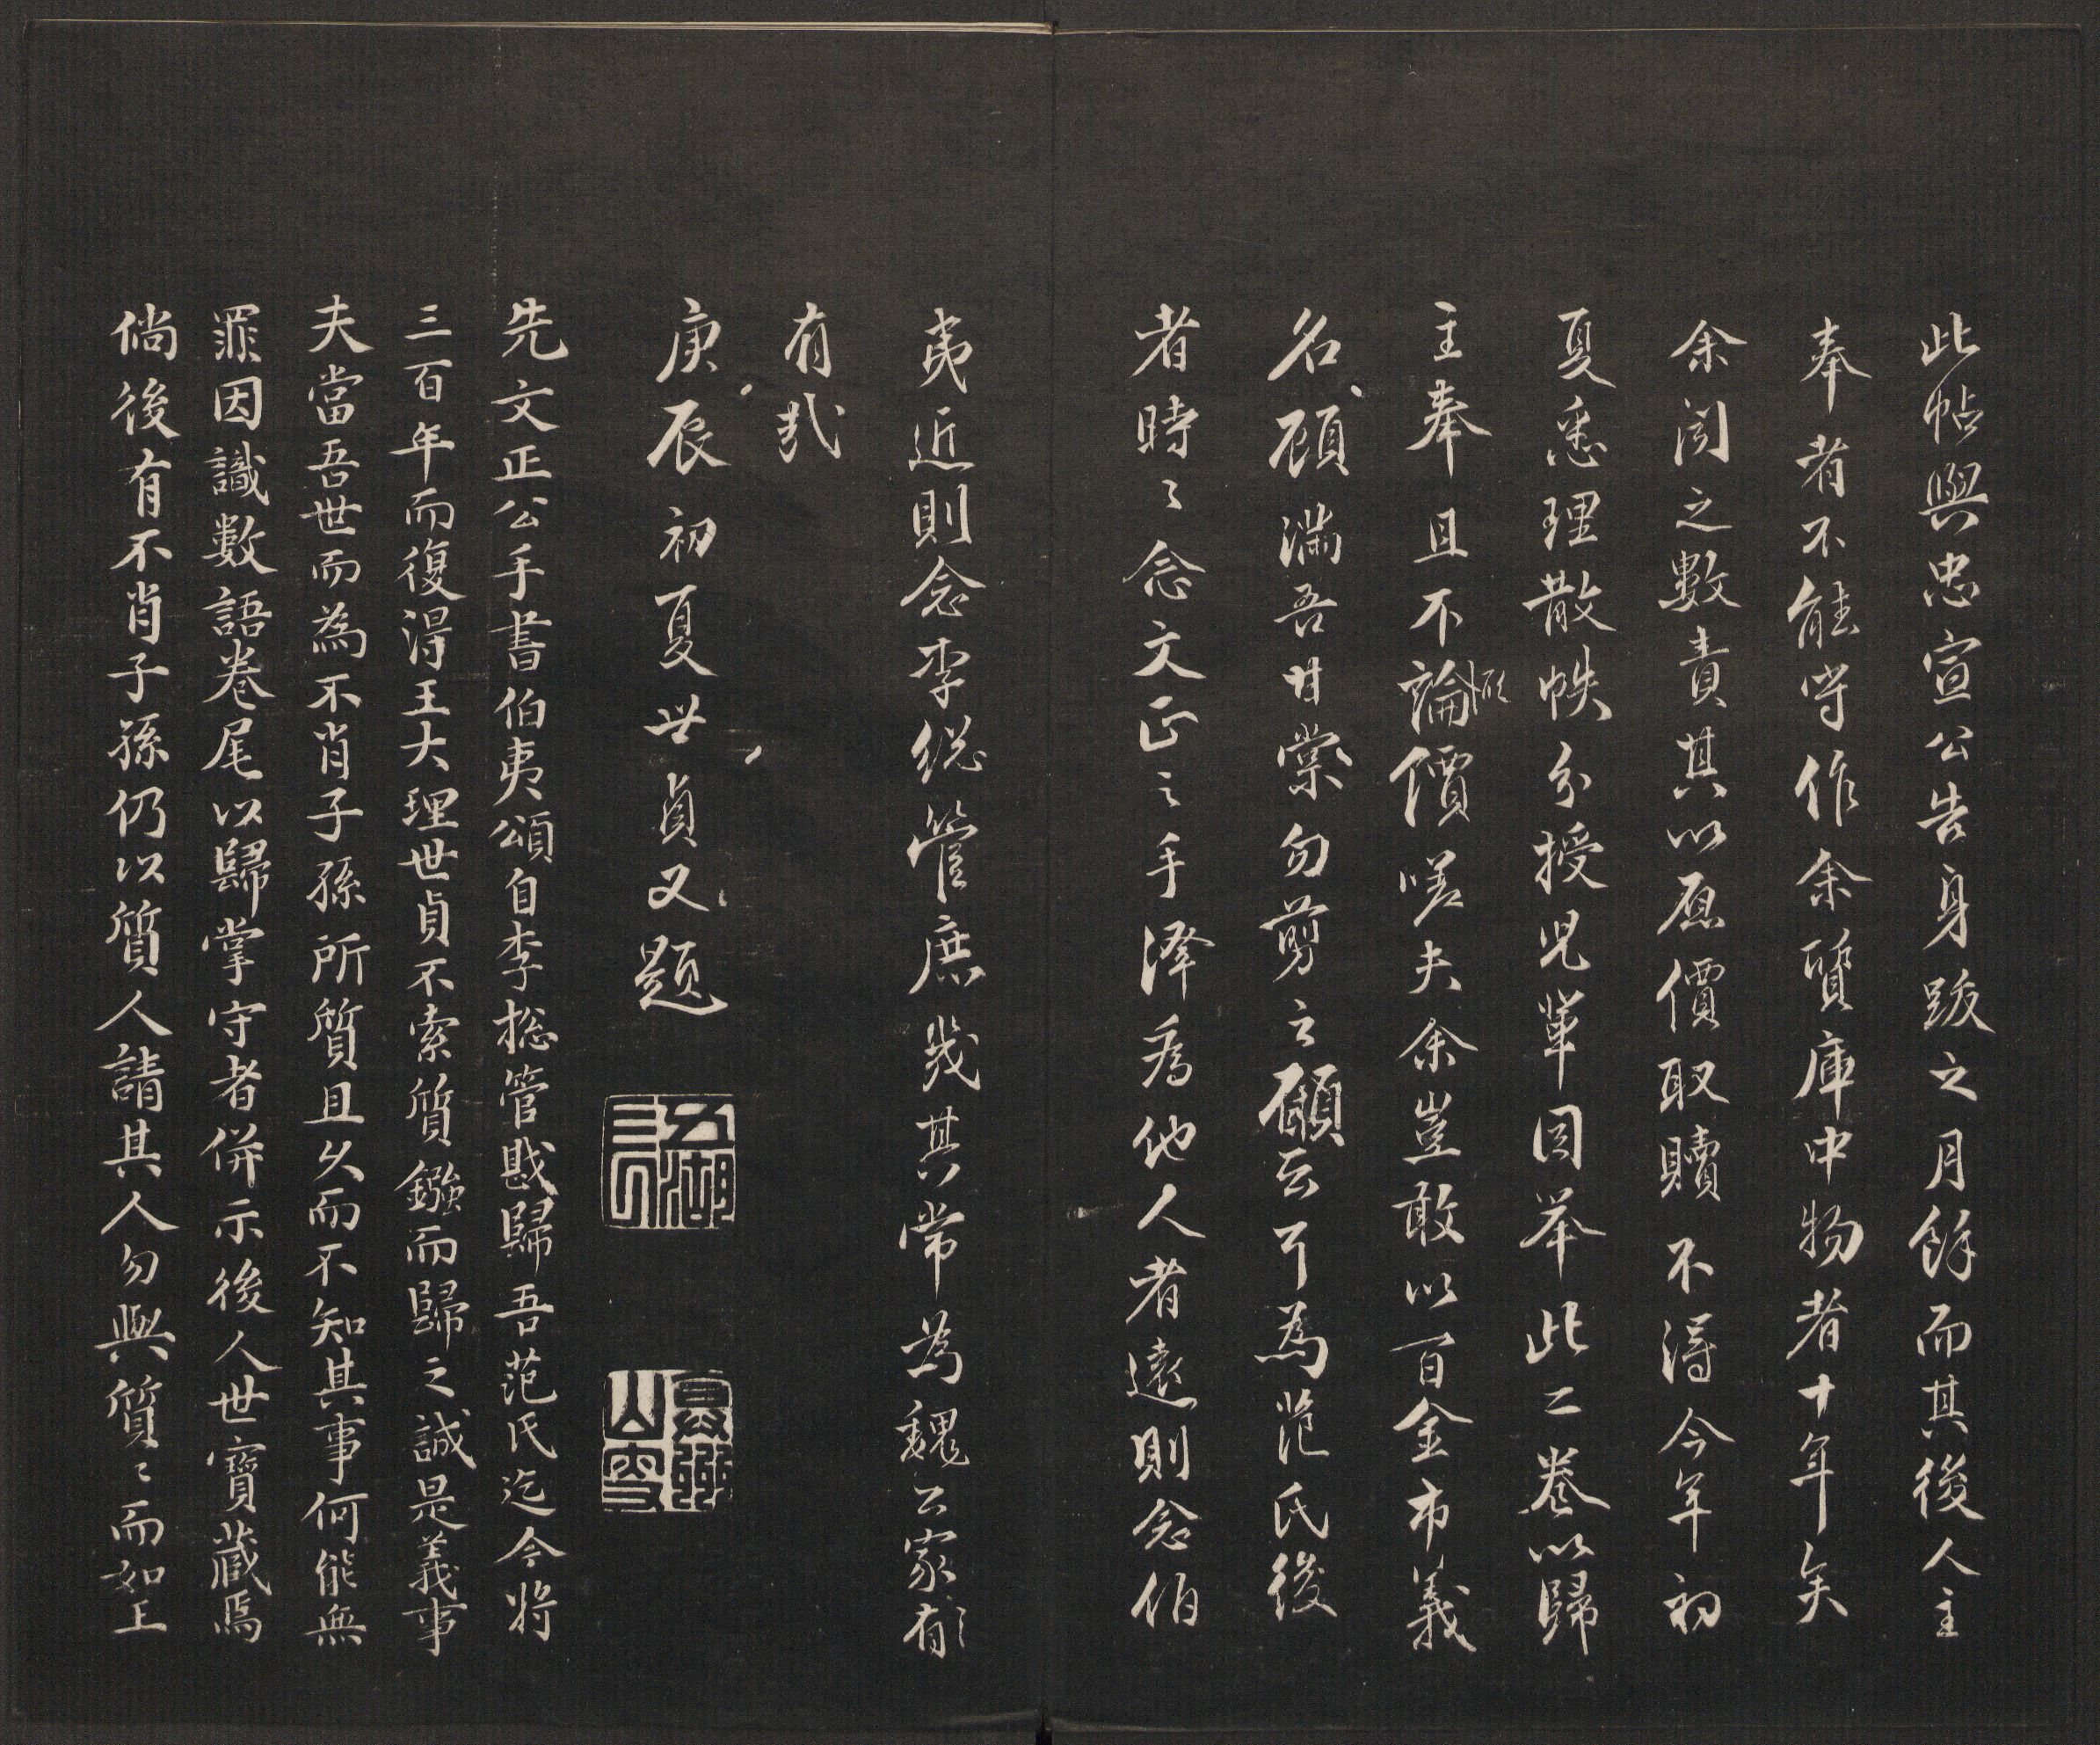 此帖與忠宣公告身跋之月餘而其後人主
奉者不能守作余質庫中物者十年矣
余聞之數責其以原價取贖不得今年初
夏悉理散帙分授兒輩因舉此二卷以歸
主奉且不論價嗟夫余豈敢以百金市義
名顧滿吾甘棠勿剪之願云耳為范氏後
者時〻念文正之手澤為他人者遠則念伯
夷近則念李總管庶幾其常為魏公家有
有哉
庚辰初夏世貞又題
先文正公手書伯夷頌自李總管戡歸吾范氏迄今將
三百年而復得王大理世貞不索質鏹而歸之誠是義事
夫當吾世而為不肖子孫所質且久而不知其事何能無
罪因識數語卷尾以歸掌守者併示後人世寶藏焉
倘後有不肖子孫仍以質人請其人勿與質〻而如上
五湖
山